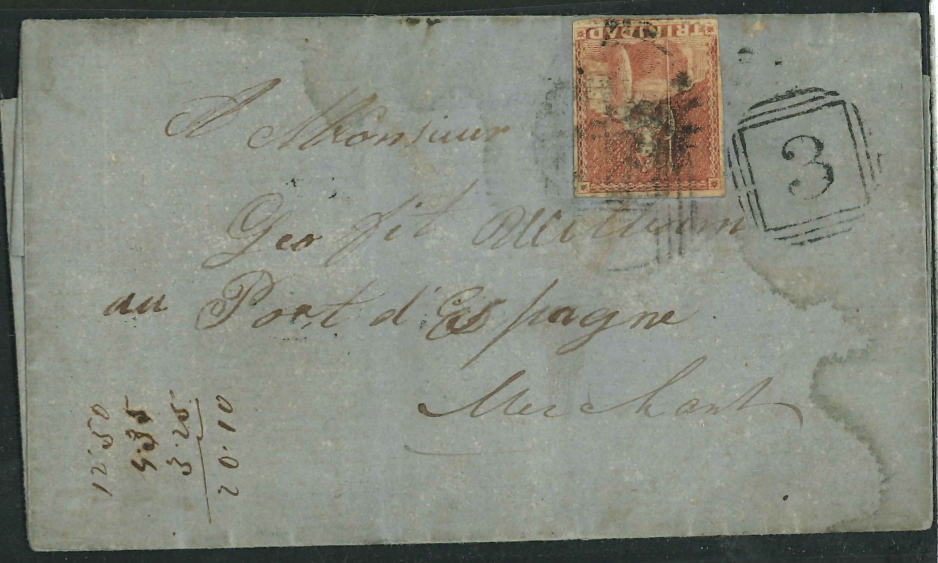 TRINIDAD
3
A Monsieur
Geo fit
au Port d'Espagne
Merchant
12.50
4.35
3.25
20.10